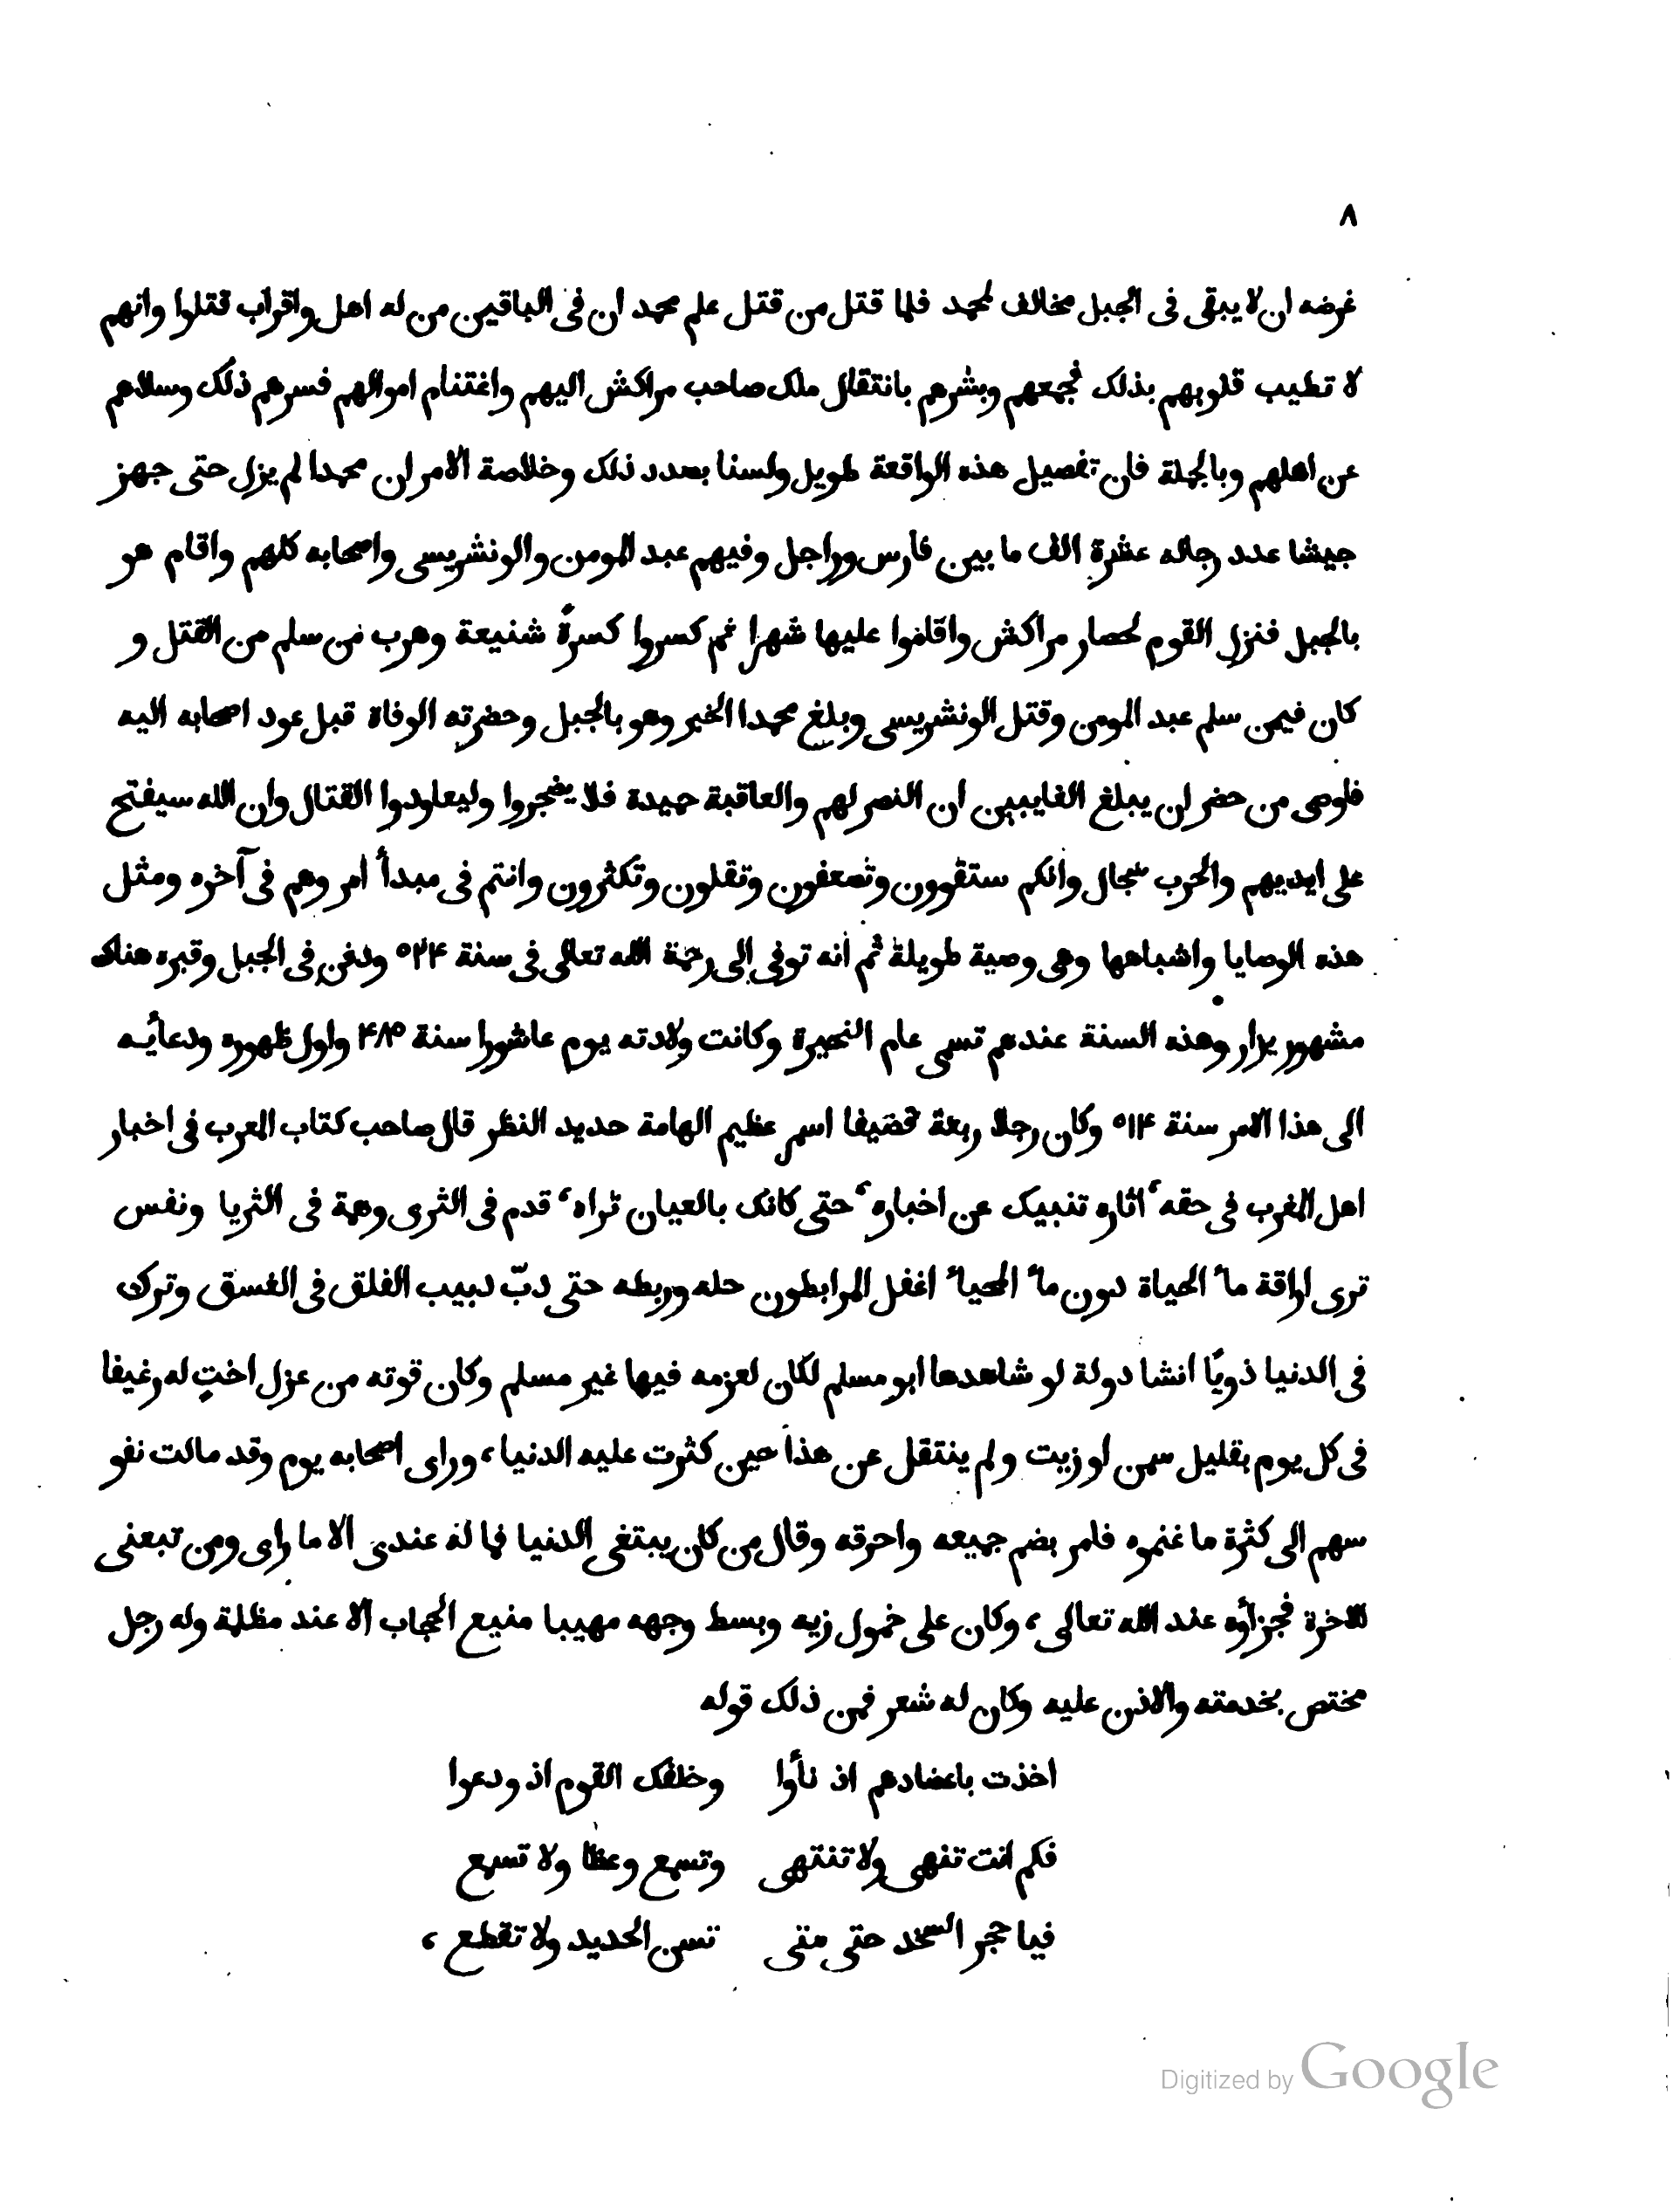 ٨
غرضه ان لا يبقى فى الجبل مخالف لمحمد فلما قتل من قتل علم محمد ان فى الباقين من له اهل واقراب قتلوا وانهم
لا تطيب قلوبهم بذلك فجمعهم وبشرهم بانتقال ملك صاحب مراكش اليهم واغتنام اموالهم فسرهم ذلك وسلاهم
عن اهلهم وبالجملة فان تفصيل هذه الواقعة طويل ولسنا بصدد ذلك وخلاصة الامر ان محمدا لم يزل حتى جهز
جيشا عدد رجاله عشرة الف ما بين فارس وراجل وفيهم عبد المومن والونشريسى واصحابه كلهم واقام هو
بالجبل فنزل القوم لحصار مراكش واقاموا عليها شهرا ثم كسروا كسرةً شنيعة وهرب من سلم من القتل و
كان فيمن سلم عبد المومن وقتل الونشريسى وبلغ محمدا الخبر وهو بالجبل وحضرته الوفاة قبل عود اصحابه اليه
فاوصى من حضر ان يبلغ الغايبين ان النصر لهم والعاقبة حميدة فلا يضجروا وليعاودوا القتال وان الله سيفتح
على ايديهم والحرب سجال وانكم ستقوون وتضعفون وتقلون وتكثرون وانتم فى مبدأ امر وهم فى آخره ومثل
هذه الوصايا واشباهها وهى وصية طويلة ثم انه توفى الى رحمة الله تعالى فى سنة ٥٢٤ ودفن فى الجبل وقبره هناك
مشهور يزار وهذه السنة عندهم تسمى عام البحيرة وكانت ولادته يوم عاشورا سنة ٤٨٥ واول ظهوره ودعأيه
الى هذا الامر سنة ٥١٤ وكان رجلا ربعة قضيفا اسمر عظيم الهامة حديد النظر قال صاحب كتاب المعرب فى اخبار
اهل المغرب فى حقه، اثاره تنبيك عن اخباره، حتى كانك بالعيان تراه، قدم فى الثرى وهمة فى الثريا ونفس
ترى اراقة مآ الحياة دون مآ المحيا اغفل المرابطون حله وربطه حتى دبّ دبيب الفلق فى الغسق وترك
فى الدنيا دويًا انشا دولة لو شاهدها ابو مسلم لكان لعزمه فيها غير مسلم وكان قوته من غزل اختٍ له رغيفا
فى كل يوم بقليل سمن او زيت ولم ينتقل عن هذا حين كثرت عليه الدنيا، وراى اصحابه يوم وقد مالت نفو
سهم الى كثرة ما غنموه فامر بضم جميعه واحرقه وقال من كان يبتغى الدنيا فما له عندى الا ما راى ومن تبعنى
للاخرة فجزاؤه عند الله تعالى، وكان على خمول زيه وبسط وجهه مهيبا منيع الحجاب الا عند مظلمة وله رجل
مختص بخدمته والاذن عليه وكان له شعر فمن ذلك قوله
اخذت باعضادهم اذ نأوا وخلفك القوم اذ ودعوا
فكم انت تنهى ولا تنتهى وتسمع وعظا ولا تسمع
فيا حجر السحد حتى متى تسن الحديد ولا تقطع،
Digitized by Google